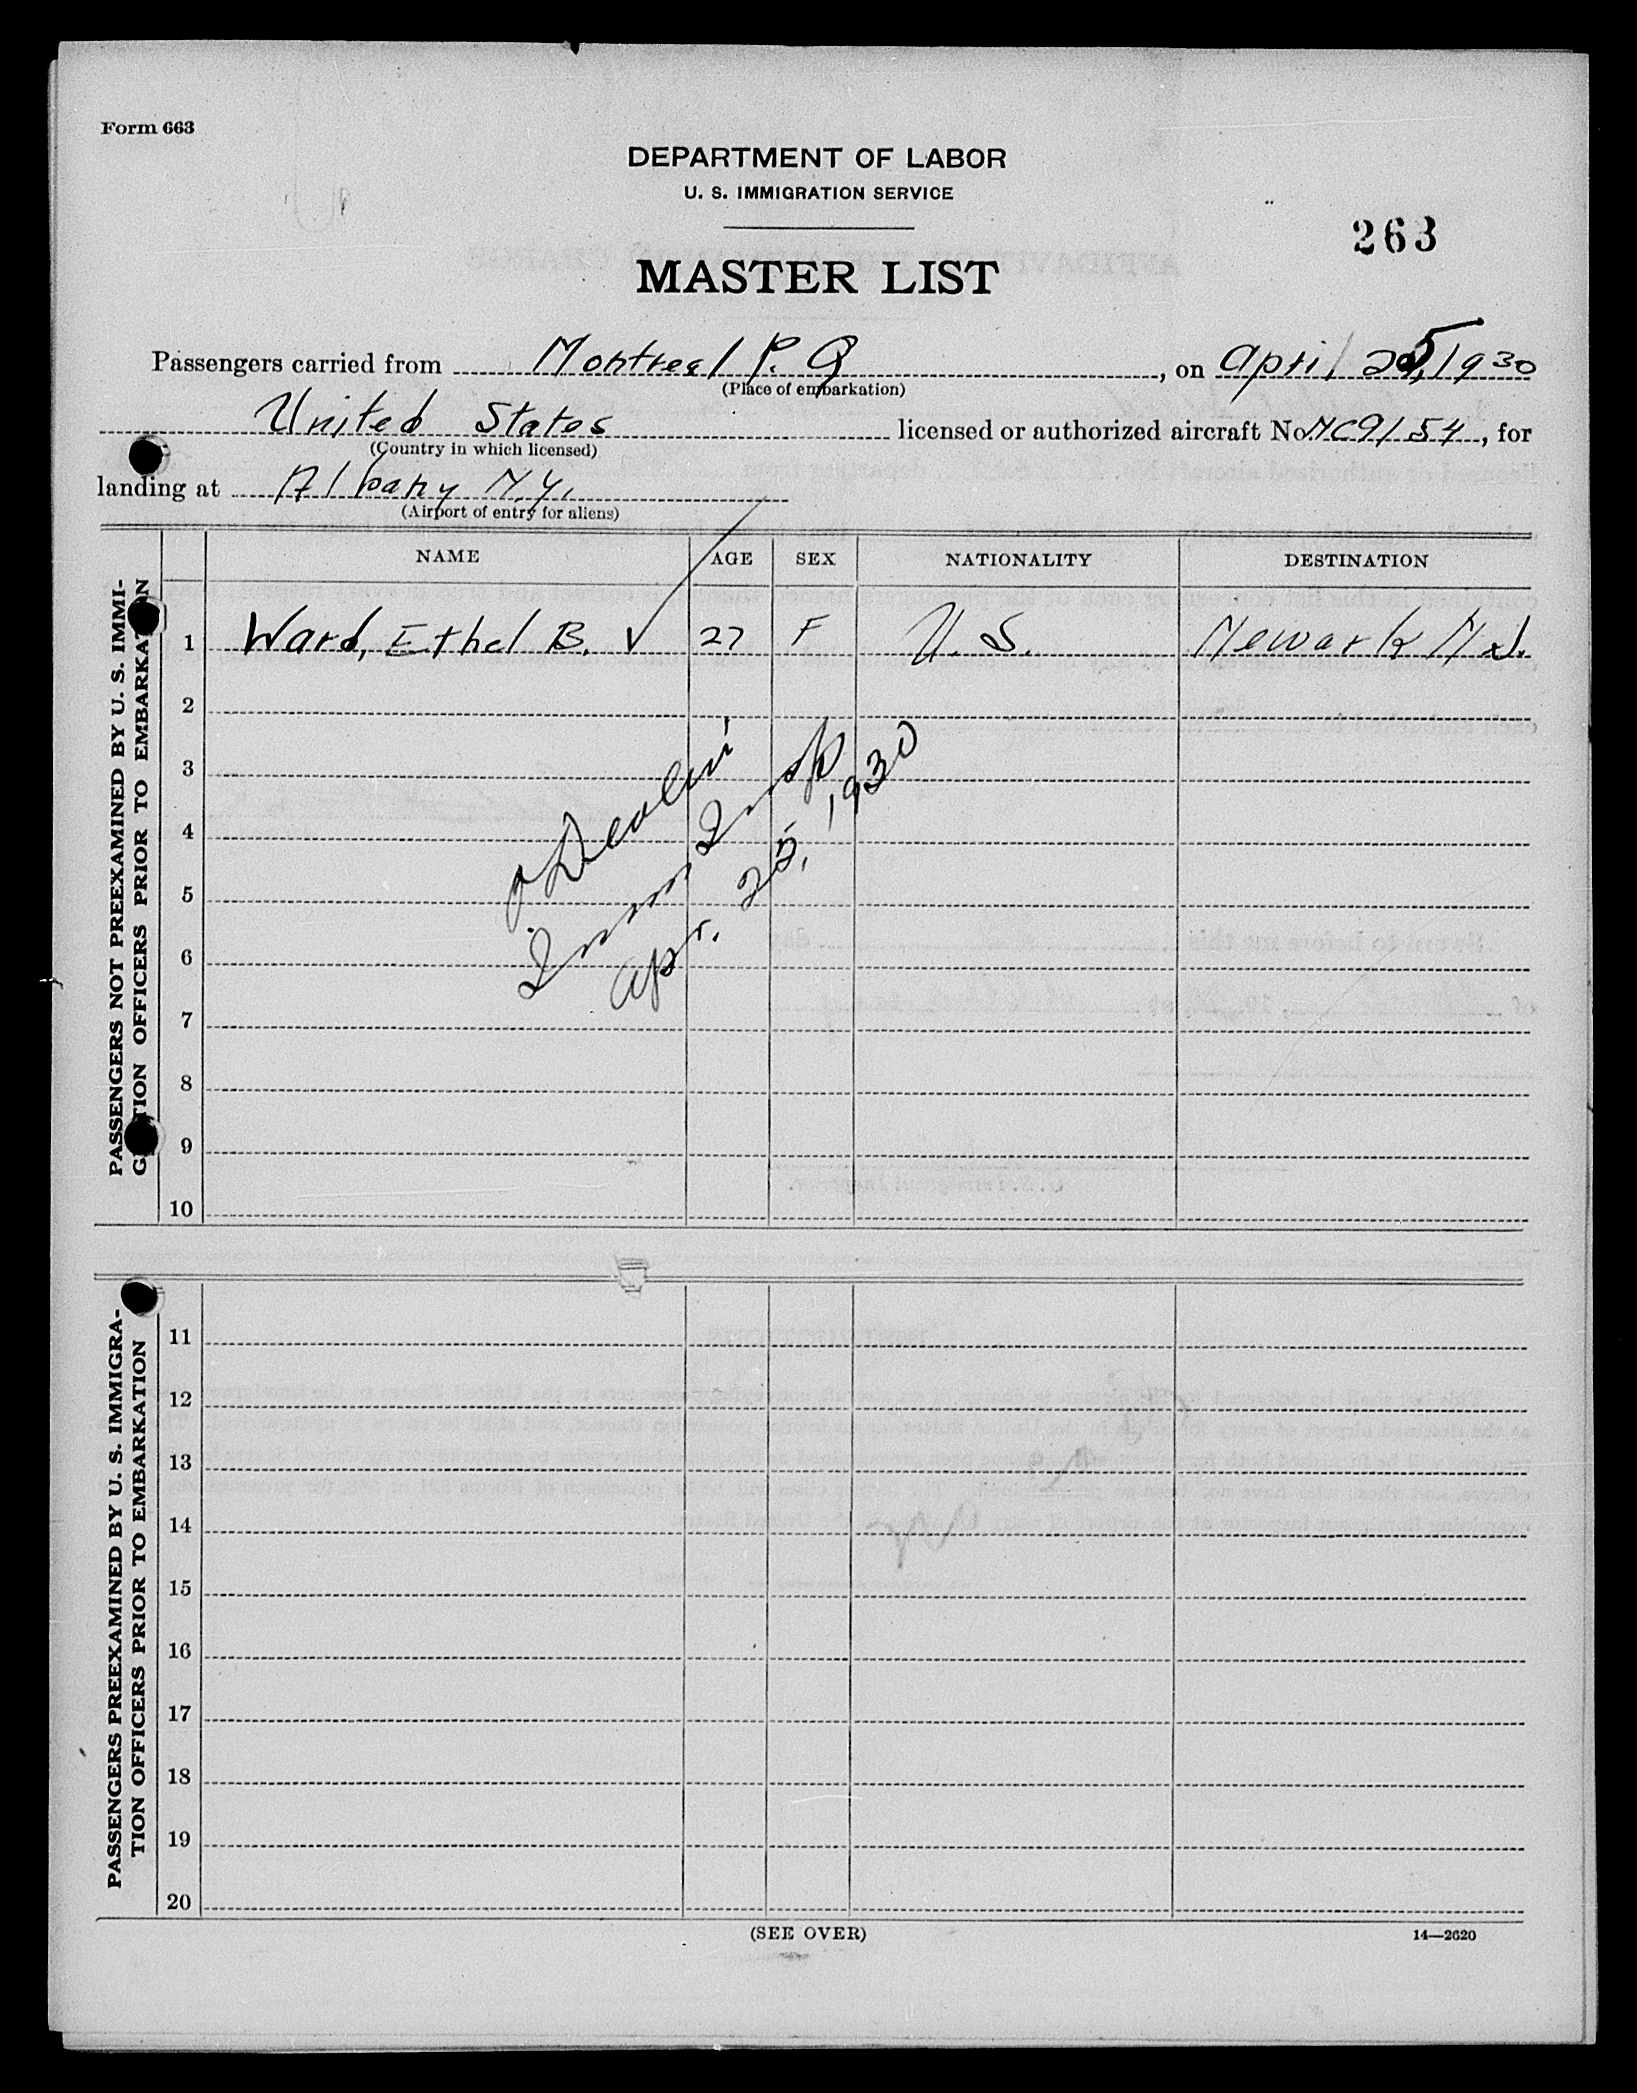 Form 663
DEPARTMENT OF LABOR
U. S. IMMIGRATION SERVICE
263
MASTER LIST
Passengers carried from Montreal P. Q , on April 25, 1930
(Place of embarkation)
United States licensed or authorized aircraft No. NC9154, for
(Country in which licensed)
landing at Albany N.Y.
(Airport of entry for aliens)
NAME AGE SEX NATIONALITY DESTINATION
PASSENGERS NOT PREEXAMINED BY U. S. IMMI-
GRATION OFFICERS PRIOR TO EMBARKATION
1 Ward, Ethel B. ✓ 27 F U. S. Newark N.J.
2
3
4
5
6
7
8
9
10
Devlin
Imm Insp
Apr. 25, 1930
PASSENGERS PREEXAMINED BY U. S. IMMIGRA-
TION OFFICERS PRIOR TO EMBARKATION
11
12
13
14
15
16
17
18
19
20
(SEE OVER)
14—2620